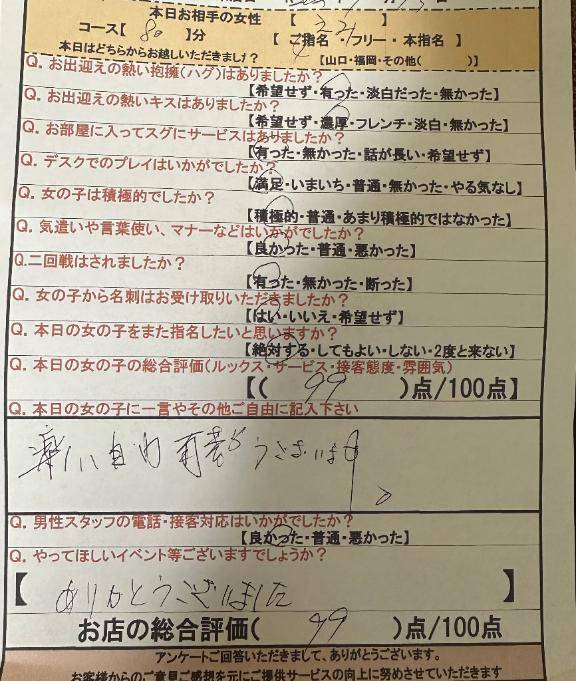 本日お相手の女性【 】
コース【 80 】分 【 ご指名・フリー・本指名 】
本日はどちらからお越しいただきました? 【山口・福岡・その他( )】
Q. お出迎えの熱い抱擁(ハグ)はありましたか?
【希望せず・有った・淡白だった・無かった】
Q. お出迎えの熱いキスはありましたか?
【希望せず・濃厚・フレンチ・淡白・無かった】
Q. お部屋に入ってスグにサービスはありましたか?
【有った・無かった・話が長い・希望せず】
Q. デスクでのプレイはいかがでしたか?
【満足・いまいち・普通・無かった・やる気なし】
Q. 女の子は積極的でしたか?
【積極的・普通・あまり積極的ではなかった】
Q. 気遣いや言葉使い、マナーなどはいかがでしたか?
【良かった・普通・悪かった】
Q.二回戦はされましたか?
【有った・無かった・断った】
Q. 女の子から名刺はお受け取りいただきましたか?
【はい・いいえ・希望せず】
Q. 本日の女の子をまた指名したいと思いますか?
【絶対する・してもよい・しない・2度と来ない】
Q. 本日の女の子の総合評価(ルックス・サービス・接客態度・雰囲気)
【( 99 )点/100点】
Q. 本日の女の子に一言やその他ご自由に記入下さい
Q. 男性スタッフの電話・接客対応はいかがでしたか?
【良かった・普通・悪かった】
Q. やってほしいイベント等ございますでしょうか?
【 ありがとうございました 】
お店の総合評価( 99 )点/100点
アンケートご回答いただきまして、ありがとうございます。
お客様からのご意見ご感想を元にご提供サービスの向上に努めさせていただきます